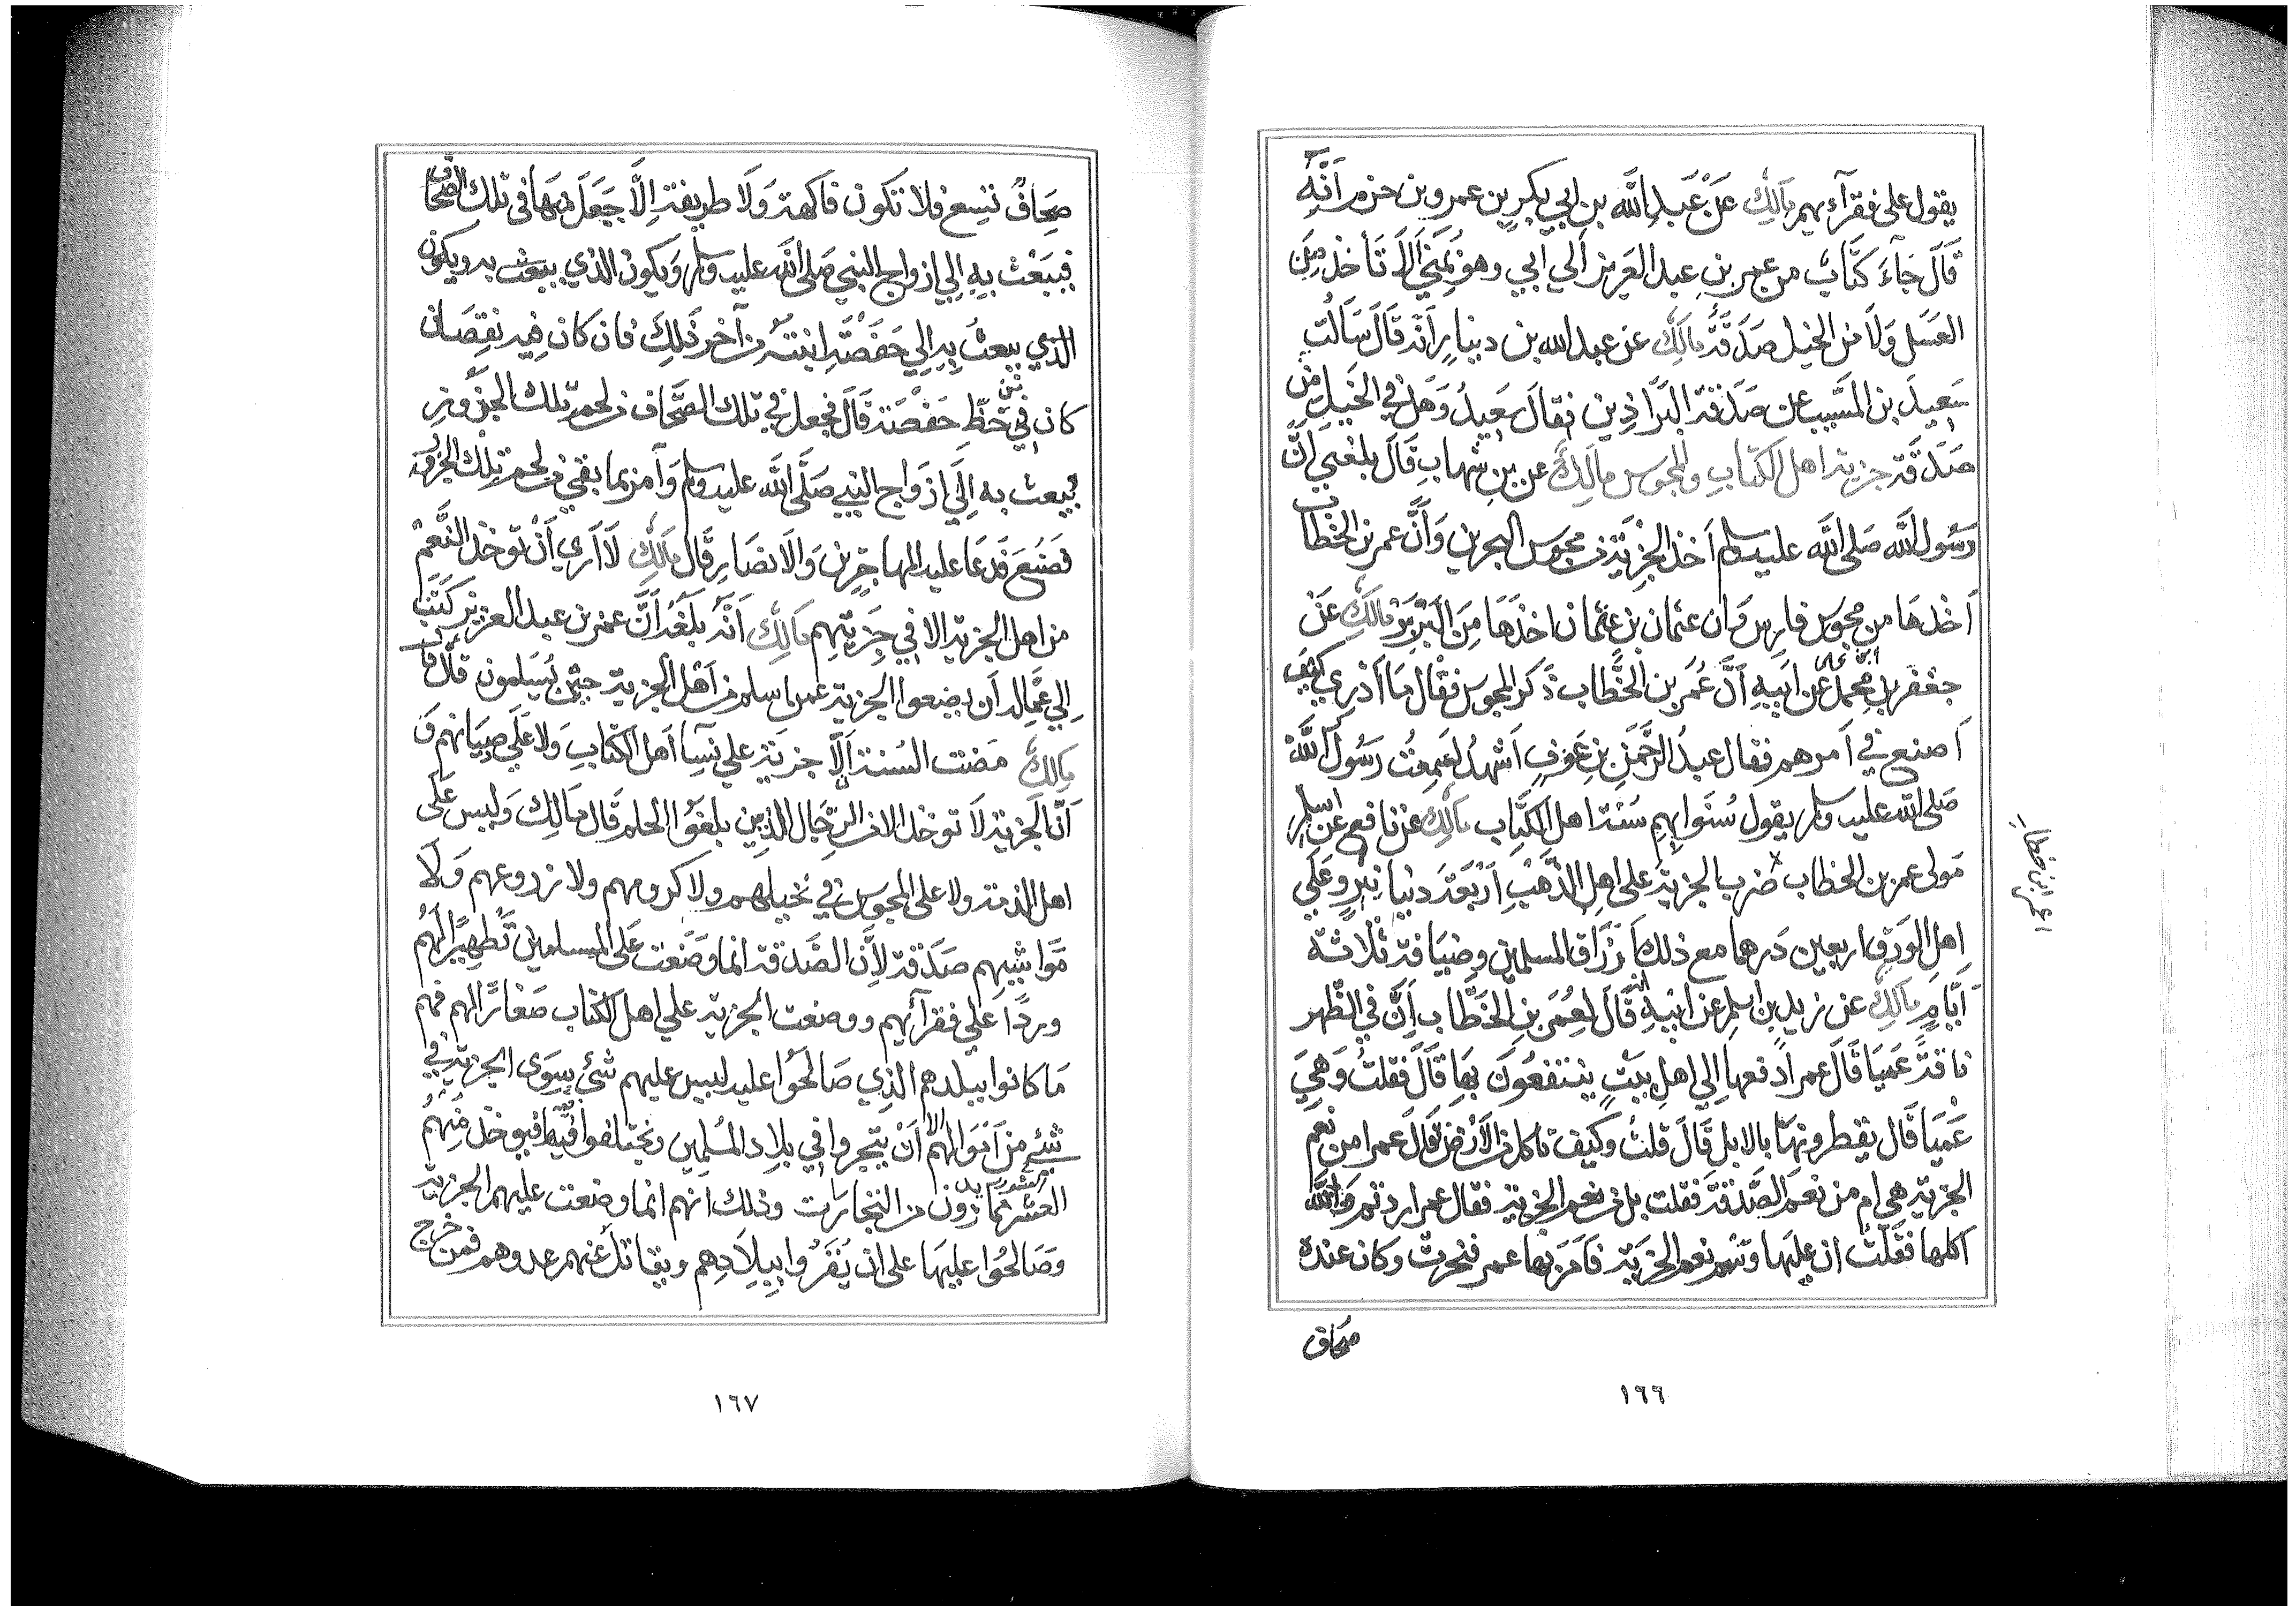 يقول على فقرآءيهم مَالِكٌ عَنْ عَبدِ اللَّه بن ابي بكرِ بن عمرو بن حزم اَنَّه
قَالَ جَآءَ كتَّابٌ من عمر بن عبد العَزيز الي ابي وهو بمِنًي اَلاَّ تَأخذ مِنَ
العَسَل وَلاَ من الخيل صَدَقَةً مَالِكٌ عن عبد الله بن دينارٍ اَنّه قَالَ سَالتُ
سَعِيدَ بن المسَّيب عن صَدَقة البَرَاذِين فقالَ سَعِيدٌ وَهَلْ في الخَيلِ من
صَدَقة جزية اهل الكتابِ والمجوس مالكٌ عن بن شهابٍ قَالَ بلغني انَّ
رَسُول اللَّه صَلى اللَّه عليه وسلم اَخذ الجزيَة من مجوس البحرين وَاَنَّ عمر بن الخطاب
اَخذهَا من مجوس فارِس وَان عثمان بن عثمان اخذهَا مِنَ البَرْبَرِ مَالكٌ عَن
جعفر بن محمد بن علي عن ابيهِ اَنَّ عُمَر بن الخطَّاب ذَكر المجوس فقَال مَا اَدْرِي كيْفَ
اَصنع في اَمرهم فقال عبدُ الرَّحْمَنِ بنِ عَوفٍ اَشهدُ لسَمِعْت رَسُول اللَّهِ
صَلى اللَّه عليه وسلم يقول سُنّوا بهِم سُنَّة اهلِ الكتَاب مَالِكٌ عَن نافعٍ عَن اسلم
مَولى عمر بن الخطاب ضرب الجزية على اهل الذَّهَبِ اَرْبَعَة دنيانيرٍ وعَلَي
اهل الوَرِق اربعين دَرهما مع ذلك اَرْزَاق المسلمين وضيَافة ثَلاثة
اَيَّامٍ مَالِكٌ عن زيد بن اسلم عن ابيه انه قَالَ لعُمَر بن الخَطَّاب اَنَّ في الظَّهر
نَاقة عَميَا قَالَ عمر ادفعها اِلي اهل بيتٍ ينتفعُونَ بهَا قَالَ فَقلتُ وَهي
عَمْيَا قَال يقطرونهَا بالابل قَالَ قلتُ وكيف تاكل من الاَرْض قَالَ عمر امن نعمِ
الجزية هي ام من نعم الصَّدقة فقلت بل من نعم الجزية فقال عمر اردتم وَاللَّه
اكلها فقلتُ ان عليهَا وَسم نعم الجزية فَاَمَرَ بهَا عمر فنحرت وكان عنده
صحاف
١٦٦
صِحَافٌ تسع فلا تكون فَاكهة وَلَا طريفة اِلَّا جَعَلَ منهَا في تلك الصحَاف
فبَعَث بهِ اِلي ازواج النبي صَلى اللَّه عليه وسلم وَيكون الذي يبعث به ويكون
الذي يبعثُ بِهِ اِلي حَفصَة ابنته من آخر ذَلِك فان كان فيه نقصَان
كان في حَظِّ حَفصَة قَالَ فجعل في تلك الصَّحَاف من لحم تلك الجَزُور
فبعث به اِلَي ازوَاج النبي صَلَّى اللَّه عليه وسلم وَاَمر بما بقي من لحم تِلك الجزور
فصُنِعَ فَدعَا عليه المهاجرين وَالاَنصَار قَالَ مَالك لاَ اَرَي اَنْ تُوخَذ النَّعَم
من اهل الجزية الا في جزيتهم مَالكٌ اَنَّه بلَغَهُ اَنَّ عمر بن عبد العزيز كَتَبَ
اِلي عمَّاله اَن يضعوا الجزية عمن اسلم من اَهْل الجزية حين يُسْلمون قَالَ
مَالكٌ مَضت السُنة اَلاَّ جزية علي نسَآ اَهل الكتَابِ وَلا علَي صبيَانهم وَ
اَنَّ الجزية لاَ توخذ الا من الرِّجَال الذين بلغوا الحلم قَال مَالك وَليس عَلى
اهل الذمة ولا على المجوس في نخيلهم ولا كرومهم ولا زروعهم وَلَا
مَوَاشيهم صَدَقة لاِنَّ الصَّدقة انما وضَعت عَلى المسلمين تطهيرًا لَهُم
وردًا عَلي فقرآئهم ووضعت الجزية علي اهل الكتاب صَغارًا لهم فهم
مَا كانوا ببلدهم الذِي صَالحُوا عليه ليس عليهم شئ سِوَى الجزية في
شئ من اَمْوَالهم الا اَنْ يتجروا في بلاد المُسْلِمين ويختلفوا فيهَا فيوخذ مِنهُم
العشر فيما يديرون من التجارات وذلك انهم انما وضعت عليهم الجزية
وَصَالحُوا عليهَا على ان يقَرُوا بِبِلاَدِهم ويقاتل عَنهم عدوهم فمن خرج
١٦٧